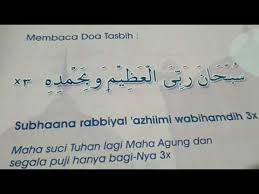 Membaca Doa Tasbih :
سُبْحَانَ رَبِّيَ الْعَظِيْمِ وَبِحَمْدِهِ ×٣
Subhaana rabbiyal 'azhiimi wabihamdih 3x
Maha suci Tuhan lagi Maha Agung dan
segala puji hanya bagi-Nya 3x